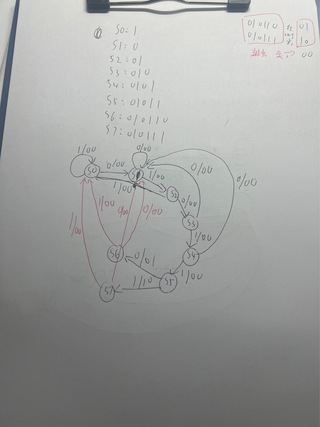 S0: 1
S1: 0
S2: 01
S3: 010
S4: 0101
S5: 01011
S6: 010110
S7: 010111
01011 0
01011 1
01
10
00
1/00
0/00
0/00
S0
S1
1/00
1/00
S2
0/00
0/00
0/00
S3
1/00
1/00
0/00
1/00
S6
0/01
S4
1/00
S5
1/10
S7